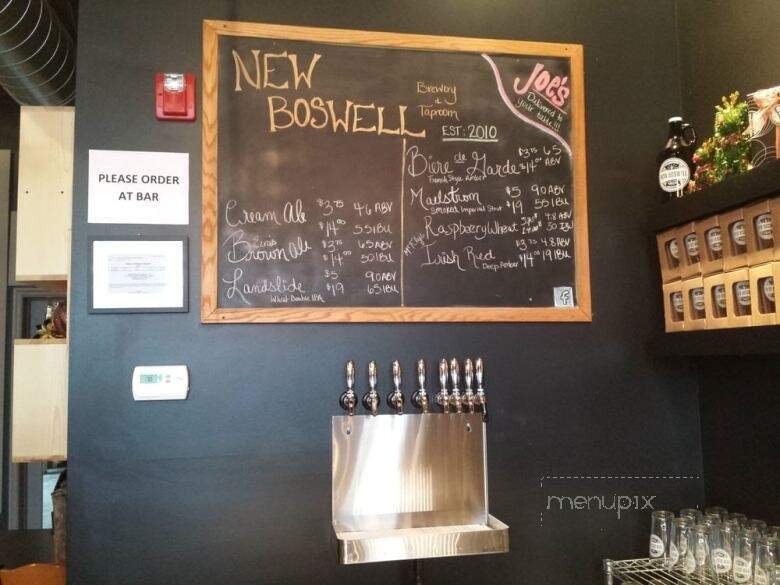 NEW
BOSWELL
Brewery
&
Taproom
EST: 2010
Joe's
Delivered to
your table!!!
PLEASE ORDER
AT BAR
Cream Ale $3.75 4.6 ABV
$14.00 55 IBU
Brown Ale $3.75 6.5 ABV
$14.00 50 IBU
Landslide $5 9.0 ABV
Wheat-Double IPA $19 65 IBU
Bière de Garde $3.75 6.5
French Style Amber $14.00 ABV
Maelstrom $5 9.0 ABV
Smoked Imperial Stout $19 55 IBU
Raspberry Wheat 4.8 ABV
30 IBU
Irish Red $3.75 4.8 ABV
Deep Amber $14.00 19 IBU
NEW BOSWELL
menupix